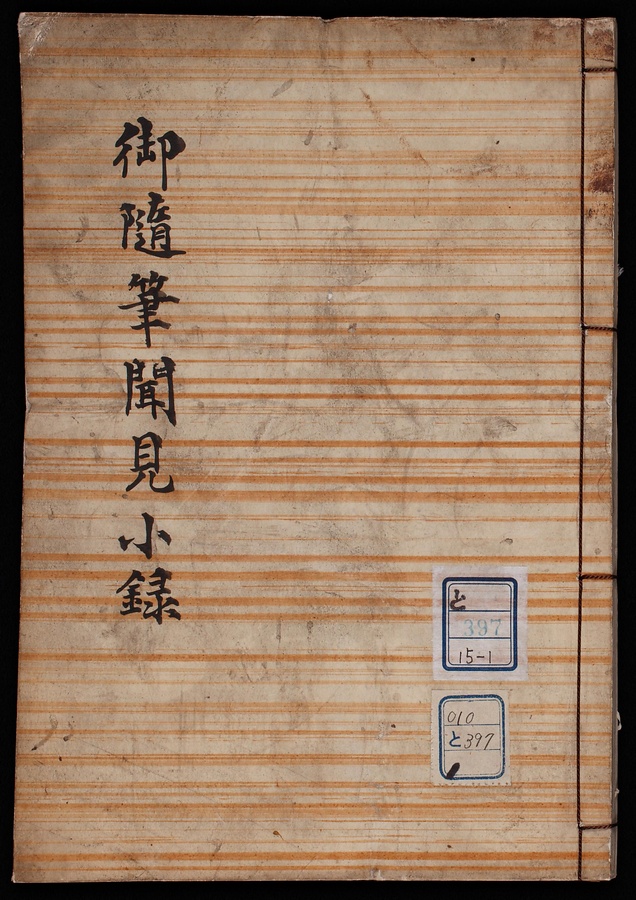 御隨筆聞見小録
と
397
15-1
010
と397